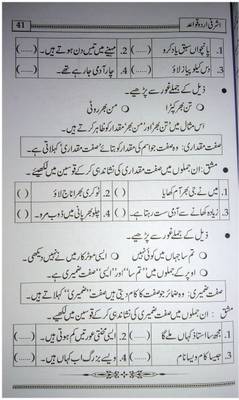 41 اشرفی اردو قواعد
1. پانچواں سبق یاد کرو (.....) 2. مہینے میں تیس دن ہوتے ہیں۔ (.....)
3. دس کیلو پیاز لاؤ (.....) 4. چار آدمی جا رہے تھے۔ (.....)
• ذیل کے جملے غور سے پڑھیے۔
○ تن بھر کپڑا ○ من بھر روئی
اس مثال میں 'تن بھر' اور 'من بھر' مقدار کو ظاہر کرتے ہیں۔
صفت مقداری: وہ صفت جو اسم کی مقدار کو بتائے "صفت مقداری" کہلاتی ہے۔
مشق: ان جملوں میں صفت مقداری کی نشاندہی کر کے قوسین میں لکھئے۔
1. میں نے جی بھر آم کھایا ( ) 2. ٹوکری بھر اناج لاؤ ( )
3. زیادہ کھانے سے آدمی ست رہتا ہے۔ ( ) 4. چلو بھر پانی میں ڈوب مرو۔ ( )
• ذیل کے جملے غور سے پڑھیے۔
○ تم سا جہاں میں کوئی نہیں ○ ایسی موٹر کار میں نے نہیں دیکھی۔
○ اوپر کے جملوں میں "تم سا" اور "ایسی" صفت ضمیری ہے۔
صفت ضمیری: وہ ضمائر جو صفت کا کام دیتی ہیں "صفت ضمیری" کہلاتے ہیں۔
مشق: ان جملوں میں صفت ضمیری کی نشاندہی کر کے قوسین میں لکھیے۔
1. مجھ سا استاذ کہاں ملے گا (.....) 2. ایسی محنتی عورتیں کم ہوتی ہیں۔ (.....)
3. جیسا کام ویسا نام (.....) 4. ویسے بزرگ اب کہاں ہیں۔ (.....)